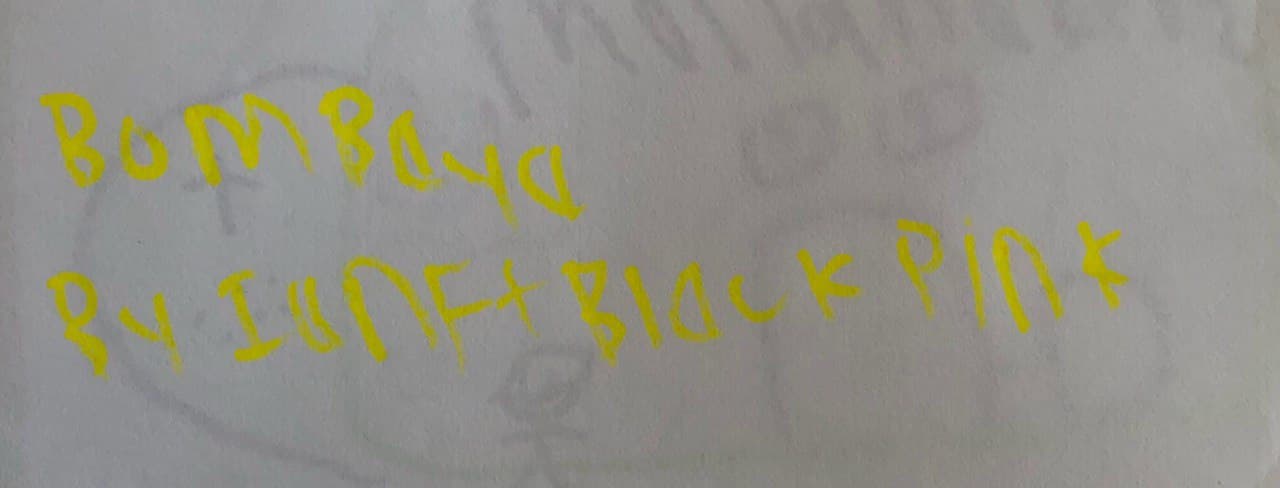 BOMBaya
By Ian Ft Black Pink